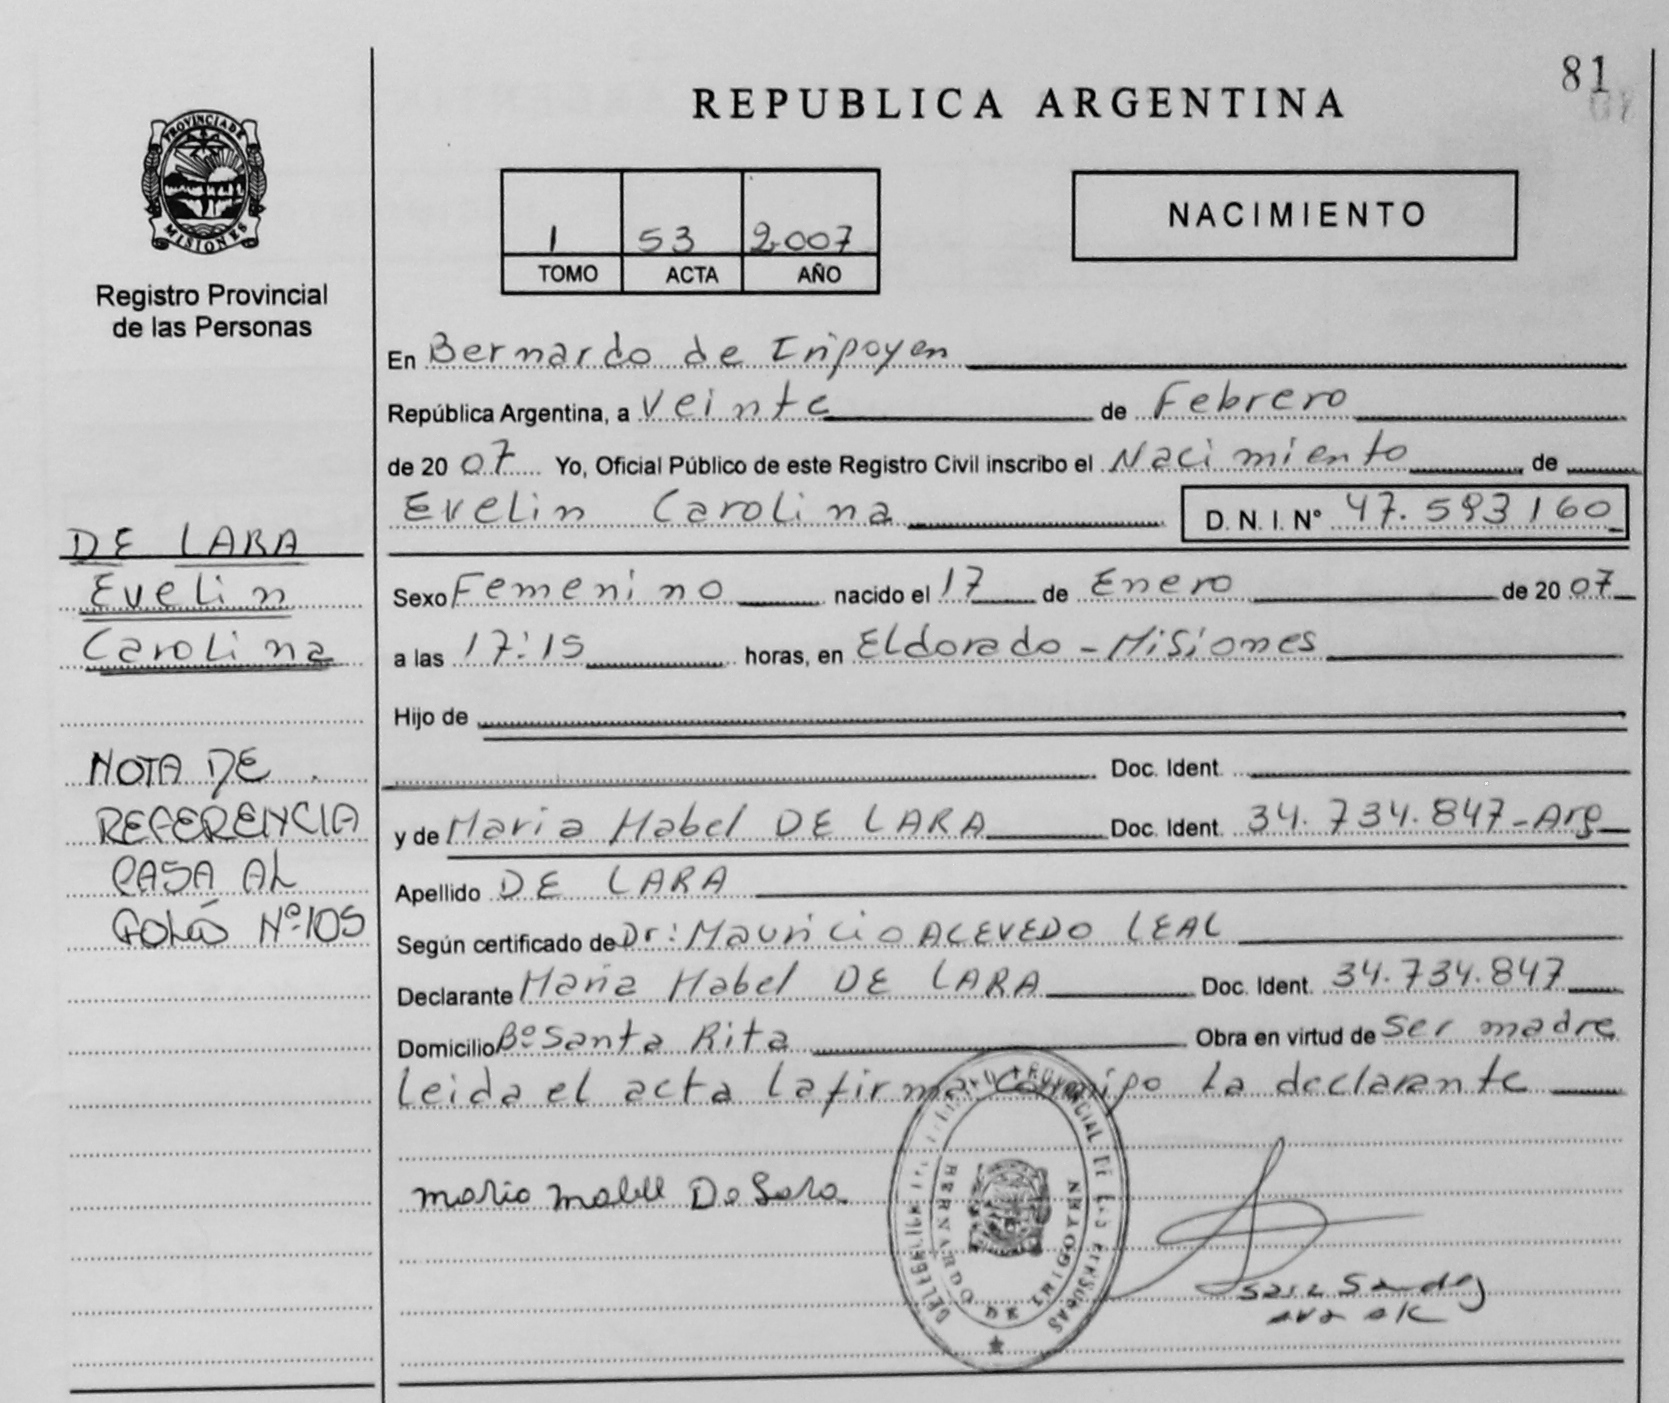 81
REPUBLICA ARGENTINA
PROVINCIA DE
MISIONES
Registro Provincial
de las Personas
1 53 2.007
TOMO ACTA AÑO
NACIMIENTO
En Bernardo de Iripoyen
República Argentina, a Veinte de Febrero
de 20 07 Yo, Oficial Público de este Registro Civil inscribo el Nacimiento de
Evelin Carolina D. N. I. N° 47.593160
DE LARA
Evelin
Carolina
Sexo Femenino nacido el 17 de Enero de 20 07
a las 17:15 horas, en Eldorado - Misiones
Hijo de
Doc. Ident.
y de Maria Mabel DE LARA Doc. Ident. 34.734.847-Arg
Apellido DE LARA
Según certificado de Dr: Mauricio ACEVEDO LEAL
Declarante Maria Mabel DE LARA Doc. Ident. 34.734.847
Domicilio Bº Santa Rita Obra en virtud de Ser madre
Leida el acta la firma conmipo la declarante
NOTA DE
REFERENCIA
PASA AL
FOLIO Nº 105
Maria Mabell De Lara
DELEGACION
REGISTRO PROVINCIAL DE LAS PERSONAS
BERNARDO DE IRIGOYEN